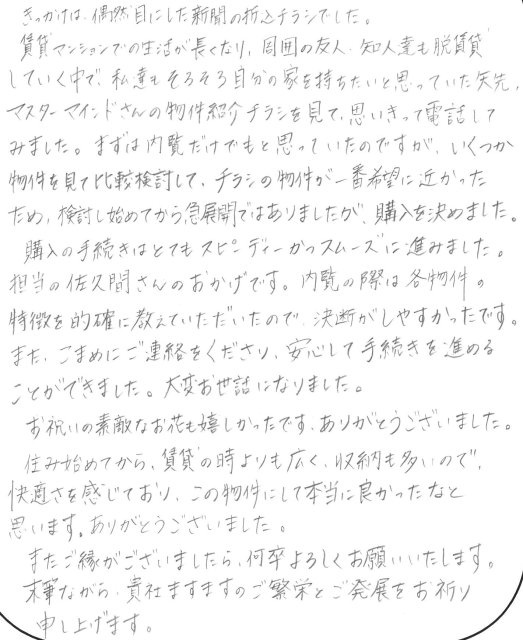 きっかけは、偶然目にした新聞の折込チラシでした。
賃貸マンションでの生活が長くなり、周囲の友人、知人達も脱賃貸
していく中で、私達もそろそろ自分の家を持ちたいと思っていた矢先、
マスターマインドさんの物件紹介チラシを見て、思いきって電話して
みました。まずは内覧だけでもと思っていたのですが、いくつか
物件を見て比較検討して、チラシの物件が一番希望に近かった
ため、検討し始めてから急展開ではありましたが、購入を決めました。
購入の手続きはとてもスピーディーかつスムーズに進みました。
担当の佐久間さんのおかげです。内覧の際は各物件の
特徴を的確に教えていただいたので、決断がしやすかったです。
また、こまめにご連絡をくださり、安心して手続きを進める
ことができました。大変お世話になりました。
お祝いの素敵なお花も嬉しかったです、ありがとうございました。
住み始めてから、賃貸の時よりも広く、収納も多いので、
快適さを感じており、この物件にして本当に良かったなと
思います。ありがとうございました。
またご縁がございましたら、何卒よろしくお願いいたします。
末筆ながら、貴社ますますのご繁栄とご発展をお祈り
申し上げます。